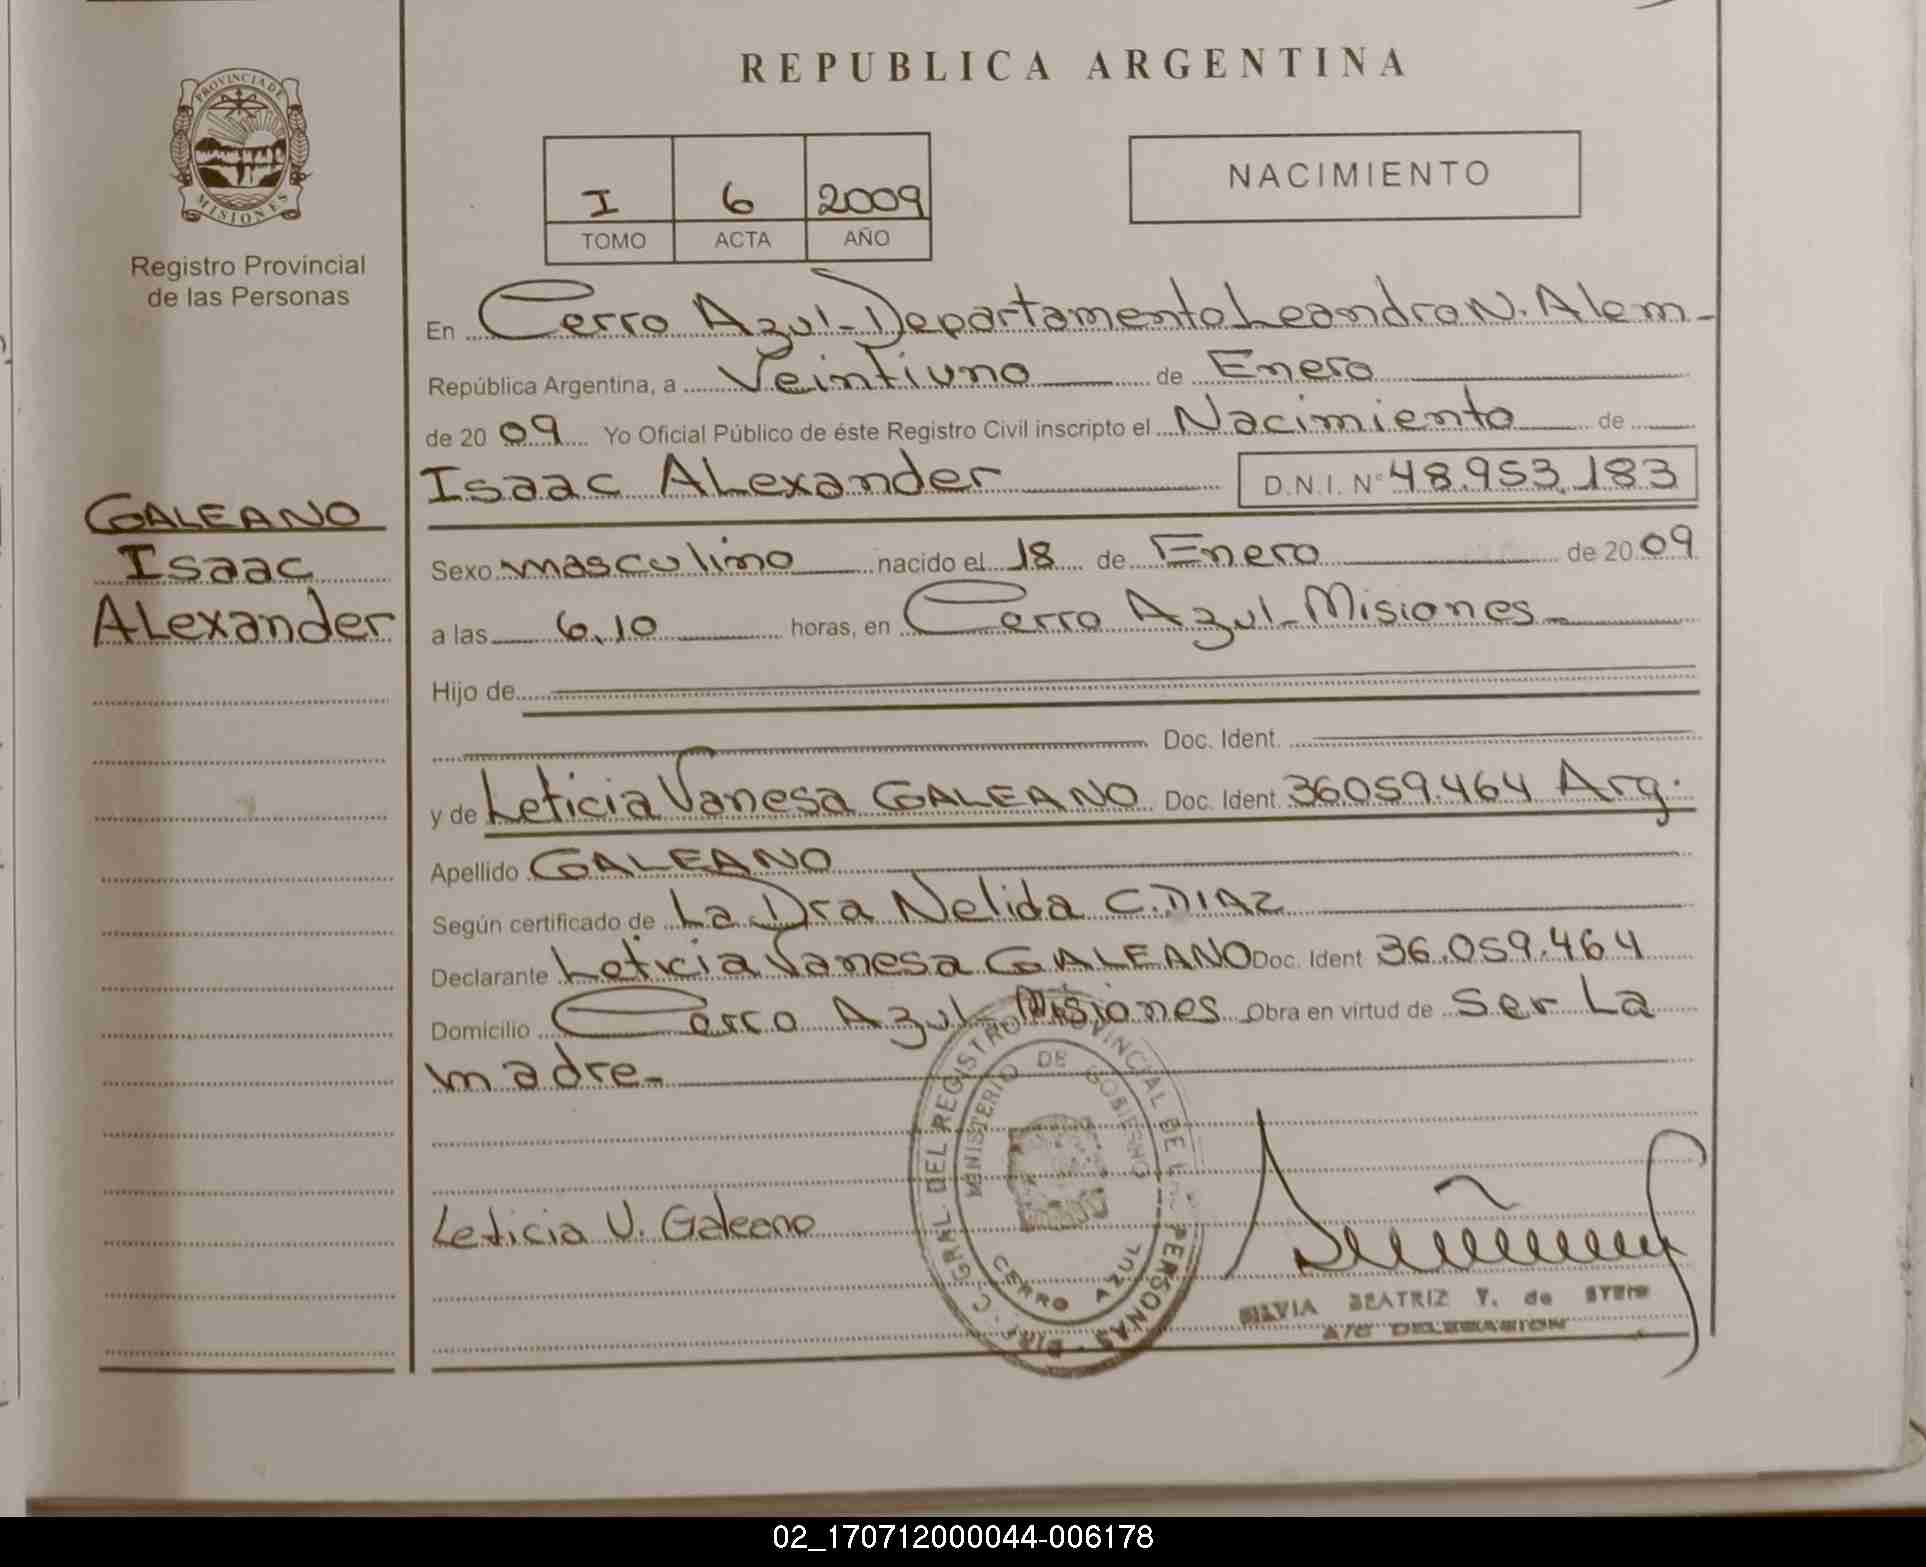 REPUBLICA ARGENTINA
PROVINCIA DE
MISIONES
Registro Provincial
de las Personas
I 6 2009
TOMO ACTA AÑO
NACIMIENTO
En Cerro Azul-Departamento Leandro N. Alem-
República Argentina, a Veintiuno de Enero
de 2009 Yo Oficial Público de éste Registro Civil inscripto el Nacimiento de
Isaac ALexander D.N.I. Nº 48.953.183
GALEANO
Isaac
ALexander
Sexo masculino nacido el 18 de Enero de 2009
a las 6,10 horas, en Cerro Azul-Misiones-
Hijo de
Doc. Ident.
y de Leticia Vanesa GALEANO Doc. Ident. 36059.464 Arg.
Apellido GALEANO
Según certificado de La Dra Nelida C. DIAZ
Declarante Leticia Vanesa GALEANO Doc. Ident 36.059.464
Domicilio Cerro Azul-Misiones Obra en virtud de Ser La
madre-
DIR. GRAL DEL REGISTRO PROVINCIAL DE LAS PERSONAS
MINISTERIO DE GOBIERNO
CERRO AZUL
Leticia V. Galeano
SILVIA BEATRIZ V. de
A/C DELEGACION
02_170712000044-006178